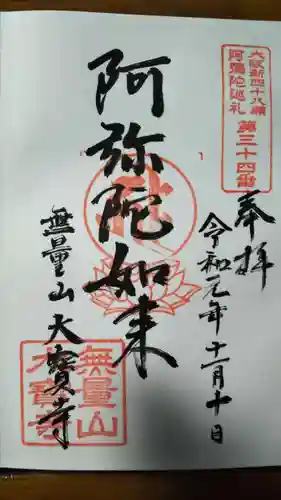 大阪新四十八願
阿彌陀巡礼 第三十四番
奉拝
令和元年十一月十日
阿弥陀如来
無量山大寳寺
無量山
大寳寺